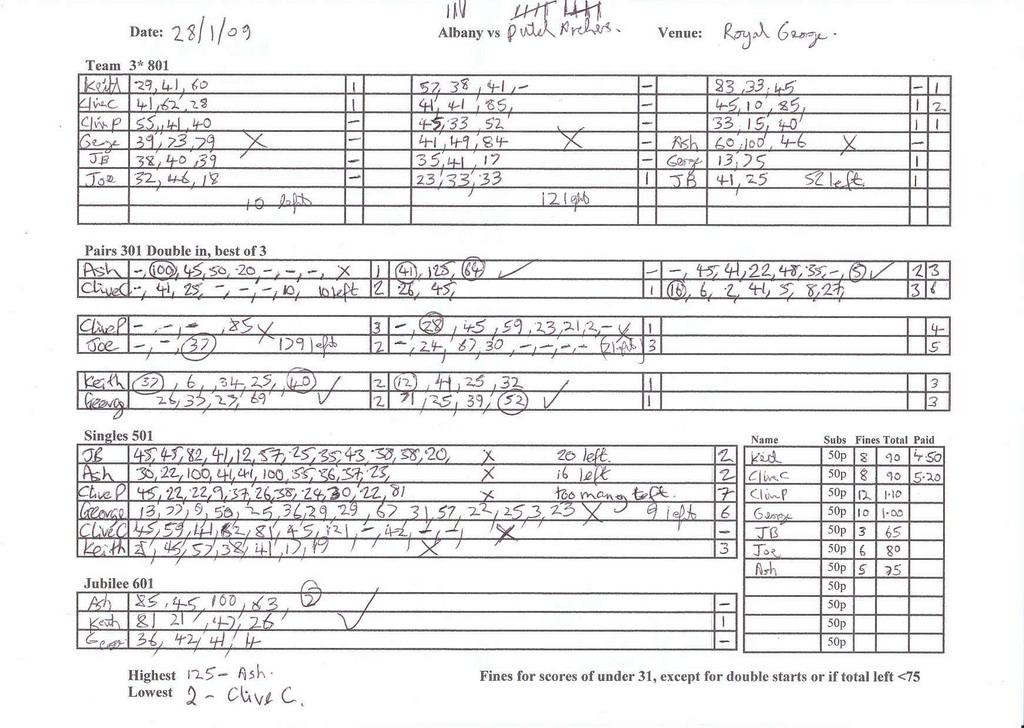 Date: 28/1/09 Albany vs Dutch Archers. Venue: Royal George.
Team 3* 801
Keith 29, 41, 60 1 57, 38, 41, - - 83, 33, 45 - 1
CliveC 41, 62, 28 1 41, 41, 85, - 45, 10, 85, 1 2
CliveP 55, 41, 40 - 45, 33, 52 - 33, 15, 40 1 1
George 39, 73, 79 X - 41, 49, 84 X - Ash 60, 100, 46 X -
JB 38, 40, 39 - 35, 41, 17 George 13, 75 1
Joe 32, 46, 18 - 23, 33, 33 1 JB 41, 25 52 left. 1
10 left 12 left
Pairs 301 Double in, best of 3
Ash -, 100, 45, 50, 20, -, -, -, X 1 41, 125, 64 ✓ - -, 45, 41, 22, 48, 35, -, 5 ✓ 2 3
CliveC -, 41, 25, -, -, -, 10, 10 left 2 26, 45, 1 16, 6, 2, 41, 5, 8, 27, 3 6
CliveP -, -, -, 85 X 3 -, 28, 45, 59, 23, 21, 2, - ✓ 1 4
Joe -, -, 37 179 left 2 -, 24, 67, 30, -, -, -, - 2 left 3 5
Keith 37, 6, 34, 25, 40 ✓ 2 12, 41, 25, 32 1 3
George 26, 33, 23, 69 ✓ 2 71, 25, 39, 52 ✓ 1 3
Singles 501
JB 45, 45, 82, 41, 12, 57, 25, 35, 43, 38, 38, 20, X 20 left. 2
Ash 30, 22, 100, 41, 41, 100, 55, 36, 37, 23, X 16 left 2
CliveP 45, 22, 22, 9, 37, 26, 38, 24, 30, 22, 81 X too many left. 7
George 13, 27, 9, 50, 25, 36, 29, 29, 67 31, 57, 22, 25, 3, 23 X 9 left 6
CliveC 45, 59, 41, 82, 81, 45, 121, -, 42, -, -, X -
Keith 45, 57, 38, 41, 17, 19 X 3
Name Subs Fines Total Paid
Keith 50p 8 90 4.50
CliveC 50p 8 90 5.20
CliveP 50p 12 1.10
George 50p 10 1.00
JB 50p 3 65
Joe 50p 6 80
Ash 50p 5 75
50p
50p
50p
50p
Jubilee 601
Ash 85, 45, 100, 63, 2 -
Keith 81 21, 47, 26 ✓ 1
George 36, 42, 41, 4 -
Highest 125 - Ash.
Lowest 2 - Clive C.
Fines for scores of under 31, except for double starts or if total left <75